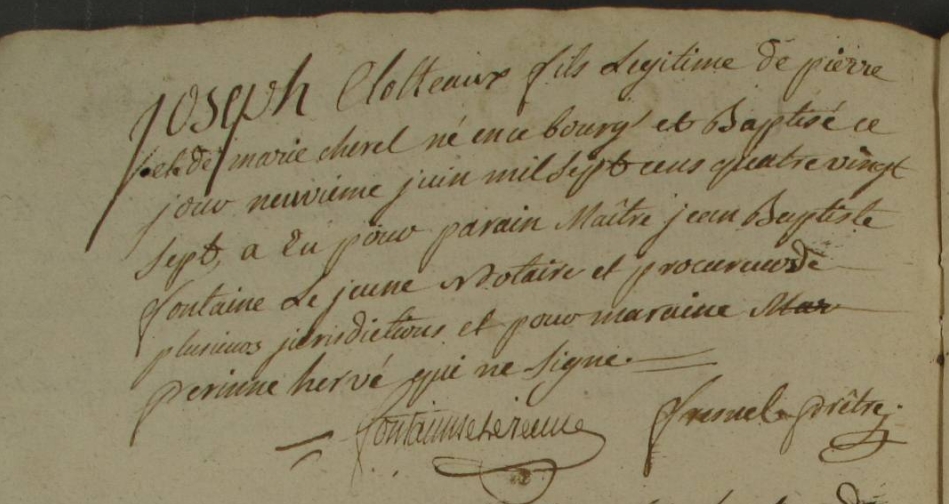 Joseph Clotteaux fils Legitime de pierre
et de marie cherel né en ce bourg et Baptisé ce
jour neuvieme juin mil sept cens quatre vingt
sept, a Eu pour parain Maître jean Baptiste
fontaine Le jeune Notaire et procureur de
plusieurs jurisdictions et pour maraine Mar
perinne hervé qui ne signe.
fontaine Le jeune prêtre